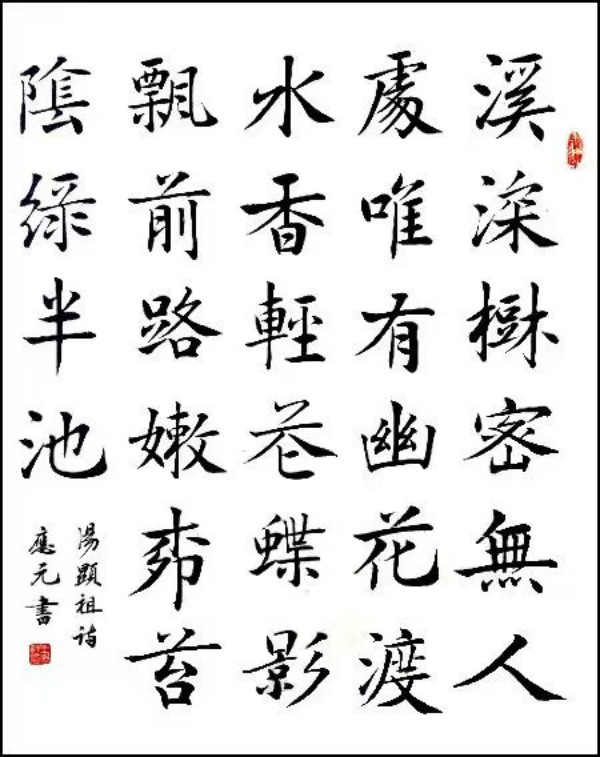 溪深樹密無人
處唯有幽花渡
水香輕芲蝶影
飄前路嫩桺苔
陰綠半池
湯顯祖詩
應元書